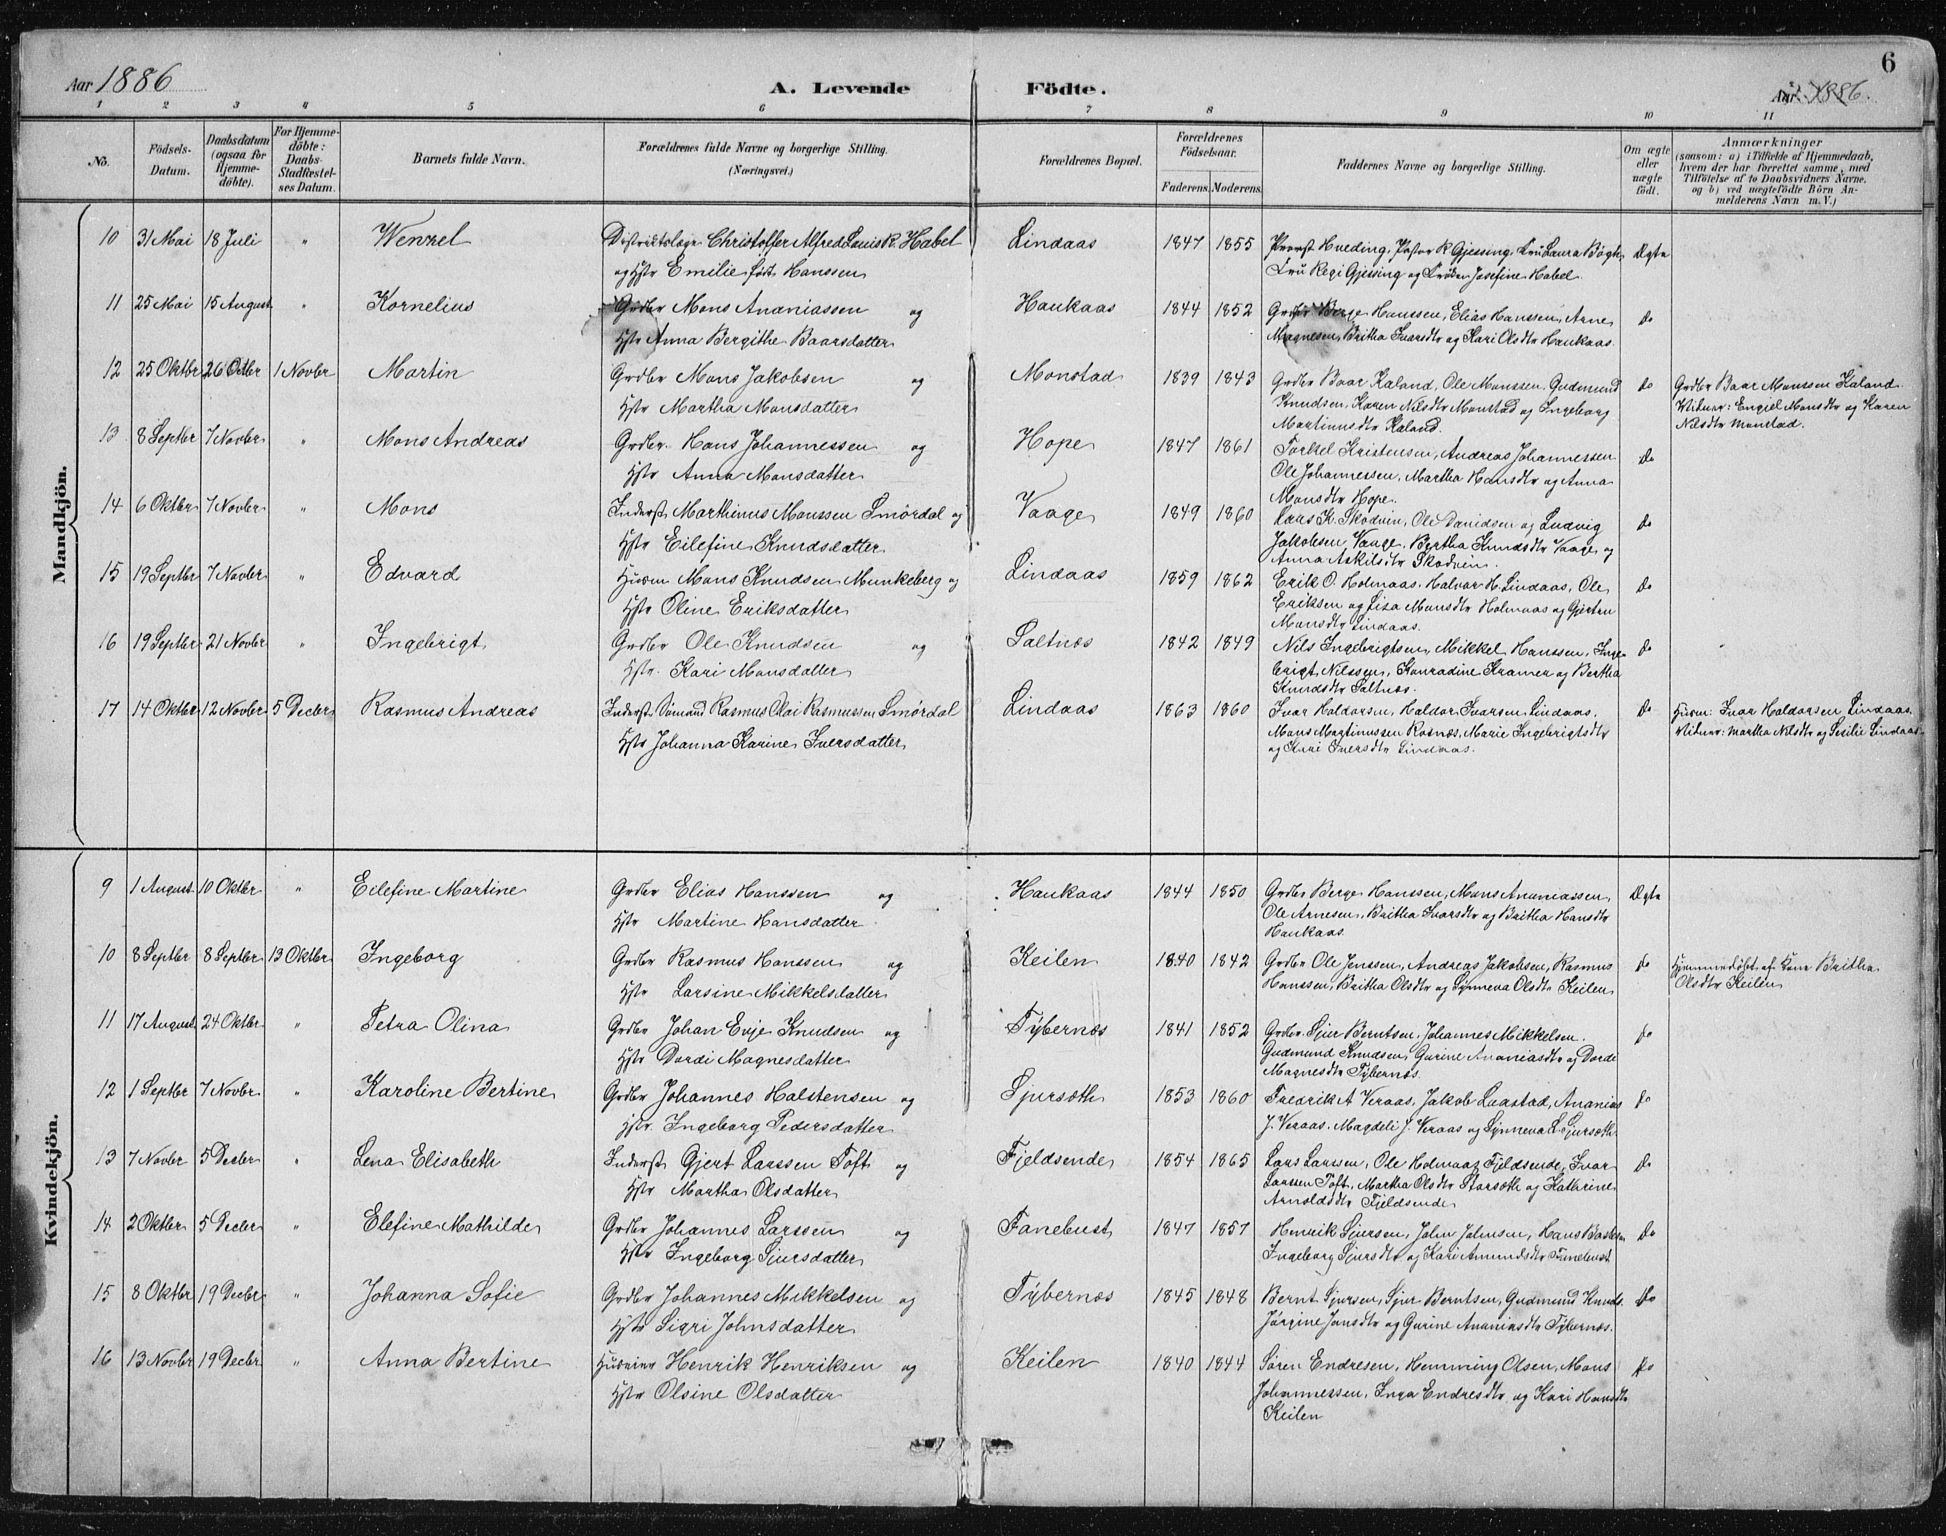 6
Aar 1886 A. Levende Födte. Aar 1886.
1 2 3 4 5 6 7 8 9 10 11
No. Födsels-Datum. Daabsdatum (ogsaa for Hjemmedöbte). For Hjemmedöbte: Daabs-Stadfæstelses Datum. Barnets fulde Navn. Forældrenes fulde Navne og borgerlige Stilling. (Næringsvei.) Forældrenes Bopæl. Forældrenes Födselsaar. Faderens. Moderens. Faddernes Navne og borgerlige Stilling. Om ægte eller uægte födt. Anmærkninger (saasom: a) i Tilfælde af Hjemmedaab, hvem der har forrettet samme, med Tilföielse af to Daabsvidners Navne, og b) ved uægtefödte Börn Anmelderens Navn m. V.)
Mandkjön.
10 31 Mai 18 Juli " Wenzel Distriktslæge Christoffer Alfred Louis K. Habel Lindaas 1847 1855 Provst Hveding, Pastor R Gjessing, Fru Laura Bøgh, Ægte
og Hstr Emilie født Hanssen Fru Regi Gjessing og Frøken Josefine Habel.
11 25 Mai 15 August " Kornelius Grdbr Mons Ananiassen og Haukaas 1844 1852 Grdbr Berge Hanssen, Elias Hanssen, Arne Do
Hstr Anna Bergithe Baarsdatter Magnesen, Britha Ivarsdtr og Kari Olsdtr Haukaas.
12 25 Oktbr 26 Octbr 1 Novbr Martin Grdbr Mons Jakobsen og Monstad 1839 1843 Grdbr Baar Kaland, Ole Monssen, Gudmund Do Grdbr Baar Monssen Kaland.
Hstr Martha Monsdatter Knudsen, Karen Nilsdtr Monstad og Ingeborg Vidner: Engiel Monsdtr og Karen
Martinusdtr Kaland. Nilsdtr Monstad.
13 8 Septbr 7 Novbr " Mons Andreas Grdbr Hans Johannessen og Hope 1847 1861 Torkel Kristensen, Andreas Johannessen Do
Hstr Anna Monsdatter Ole Johannessen, Martha Hansdtr og Anna
Monsdtr Hope.
14 6 Oktbr 7 Novbr " Mons Inderst Marthinus Monssen Smørdal og Vaage 1849 1860 Lars K. Skodvin, Ole Davidsen og Ludvig Do
Hstr Eilefine Knudsdatter Jakobsen Vaage, Bertha Knudsdtr Vaage og
Anna Askilsdtr Skodvin.
15 19 Septbr 7 Novbr " Edvard Husm Mons Knudsen Munkeberg og Lindaas 1859 1862 Erik O. Holmaas, Halvor H. Lindaas, Ole Do
Hstr Oline Eriksdatter Eriksen og Lisa Monsdtr Holmaas og Gjertru
Monsdtr Lindaas.
16 19 Septbr 21 Novbr " Ingebrigt Grdbr Ole Knudsen og Saltnæs 1842 1849 Nils Ingebrigtsen, Mikkel Hanssen, Inge- Do
Hstr Kari Monsdatter brigt Nilssen, Konradine Kramer og Bertha
Knudsdtr Saltnæs.
17 14 Oktbr 12 Novbr 5 Decbr Rasmus Andreas Inderst Sømand Rasmus Olai Rasmussen Smørdal Lindaas 1863 1860 Ivar Haldorsen, Haldor Ivarsen Lindaas, Do Husm: Ivar Haldorsen Lindaas.
Hstr Johanna Karine Iversdatter Mons Martinussen Rosnæs, Marie Ingebrigtsdtr Vidner: Martha Nilsdtr og Sesilie Lindaas.
og Kari Iversdtr Lindaas.
Kvindekjön.
9 1 August 10 Oktbr " Eilefine Martine Grdbr Elias Hanssen og Haukaas 1844 1850 Grdbr Berge Hanssen, Mons Ananiassen, Ægte
Hstr Martine Hansdatter Ole Arnesen, Britha Ivarsdtr og Britha Hansdtr
Haukaas.
10 8 Septbr 8 Septbr 13 Oktbr Ingeborg Grdbr Rasmus Hanssen og Keilen 1840 1842 Grdbr Ole Jenssen, Andreas Jakobsen, Rasmus Do Hjemmedøbt af Kone Britha
Hstr Larsine Mikkelsdatter Hanssen, Britha Olsdtr og Synneva Olsdtr Keilen Olsdtr Keilen
11 17 August 24 Oktbr " Petra Olina Grdbr Johan Evje Knudsen og Tybernæs 1841 1852 Grdbr Sjur Berntsen, Johannes Mikkelsen. Do
Hstr Dordi Magnesdatter Gudmund Knudsen, Gurine Ananiasdtr og Dorde
Magnesdtr Tybernæs.
12 1 Septbr 7 Novbr " Karoline Bertine Grdbr Johannes Halstensen og Sjursæth 1853 1860 Fredrik A Veraas, Jakob Lastad, Ananias Do
Hstr Ingeborg Pedersdatter J. Veraas, Magdeli J. Veraas og Synneva L. Sjursæth
13 7 Novbr 5 Decbr " Lena Elisabeth Inderst Gjert Larssen Toft og Fjeldsende 1854 1865 Lars Larssen, Ole Holmaas Fjeldsende, Ivar Do
Hstr Martha Olsdatter Larssen Toft, Martha Olsdtr Storsæth og Kathrine
Arnoldsdtr Fjeldsende
14 2 Oktbr 5 Decbr " Elefine Mathilde Grdbr Johannes Larssen og Fanebust 1847 1857 Henrik Sjursen, John Johnsen, Hans Do
Hstr Ingeborg Sjursdatter Ingeborg Sjursdtr og Kari Amundsdtr Fanebust
15 8 Oktbr 19 Decbr " Johanna Sofie Grdbr Johannes Mikkelsen og Tybernæs 1845 1848 Bernt Sjursen, Sjur Berntsen, Gudmund Knuds. Do
Hstr Sigri Johnsdatter Jørgine Jonsdtr og Gurine Ananiasdtr Tybernæs.
16 13 Novbr 19 Decbr " Anna Bertine Henrik Henriksen og Keilen 1840 1844 Søren Endresen, Hemming Olsen, Mons Do
Hstr Olsine Olsdatter Johannessen, Inga Endresdtr og Kari Hansdtr
Keilen